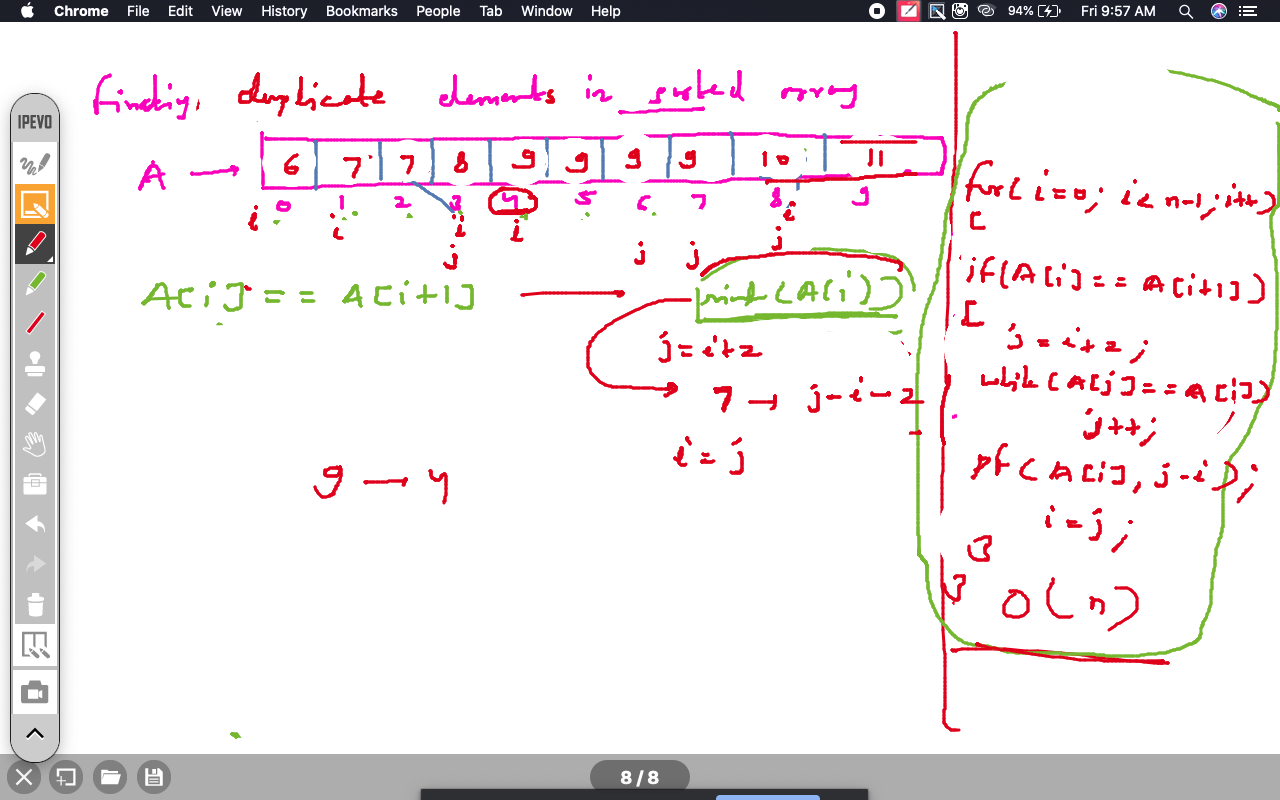 Chrome File Edit View History Bookmarks People Tab Window Help 94% Fri 9:57 AM
IPEVO
finding duplicate elements in sorted array
A → 6 7 7 8 9 9 9 9 10 11
0 1 2 3 4 5 6 7 8 9
i i i i i
j j j j
A[i] == A[i+1] → print(A[i])
j = i+2
7 → j-i-2
i = j
9 → 4
for(i=0; i<n-1; i++)
[
if(A[i]==A[i+1])
[
j=i+2;
while(A[j]==A[i])
j++;
pf(A[i], j-i);
i=j;
}
}
O(n)
8 / 8